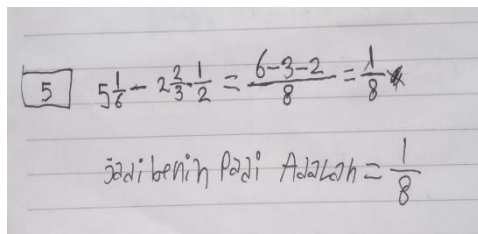 5 5 1/6 - 2 2/3 - 1/2 = (6-3-2)/8 = 1/8
Jadi benih Padi Adalah = 1/8